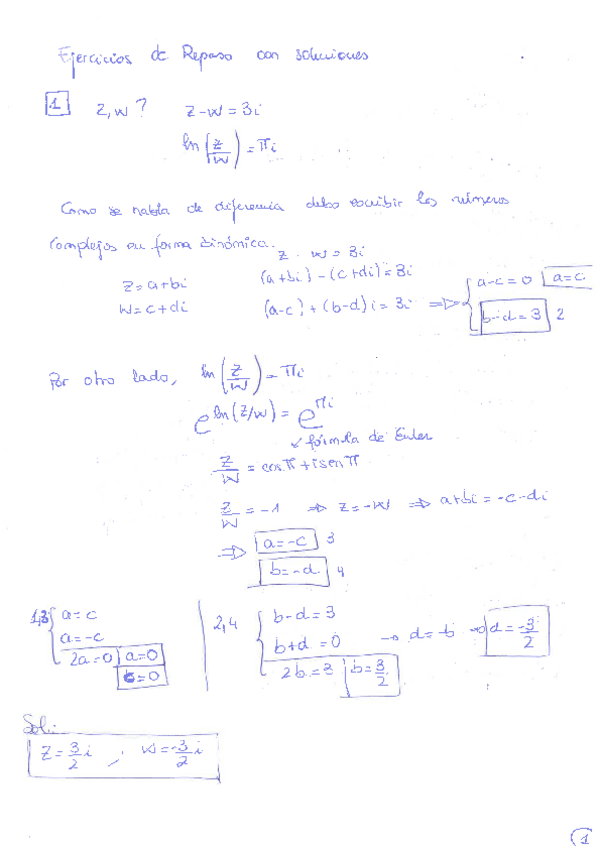 Ejercicios de Repaso con soluciones
1 z, w ? z-w = 3i
ln(z/w) = πi
Como se habla de diferencia debo escribir los números
complejos en forma binómica.
z - w = 3i
z = a+bi (a+bi) - (c+di) = 3i
w = c+di (a-c) + (b-d)i = 3i ⇒ { a-c = 0 a=c
b-d = 3 2
Por otro lado, ln(z/w) = πi
e^ln(z/w) = e^πi
↙ fórmula de Euler
z/w = cos π + i sen π
z/w = -1 ⇒ z = -w ⇒ a+bi = -c-di
⇒ a = -c 3
b = -d 4
1,3 { a = c
a = -c
2a = 0 a = 0
c = 0
2,4 { b-d = 3
b+d = 0 → d = -b → d = -3/2
2b = 3 b = 3/2
Sol:
z = 3/2 i ; w = -3/2 i
1